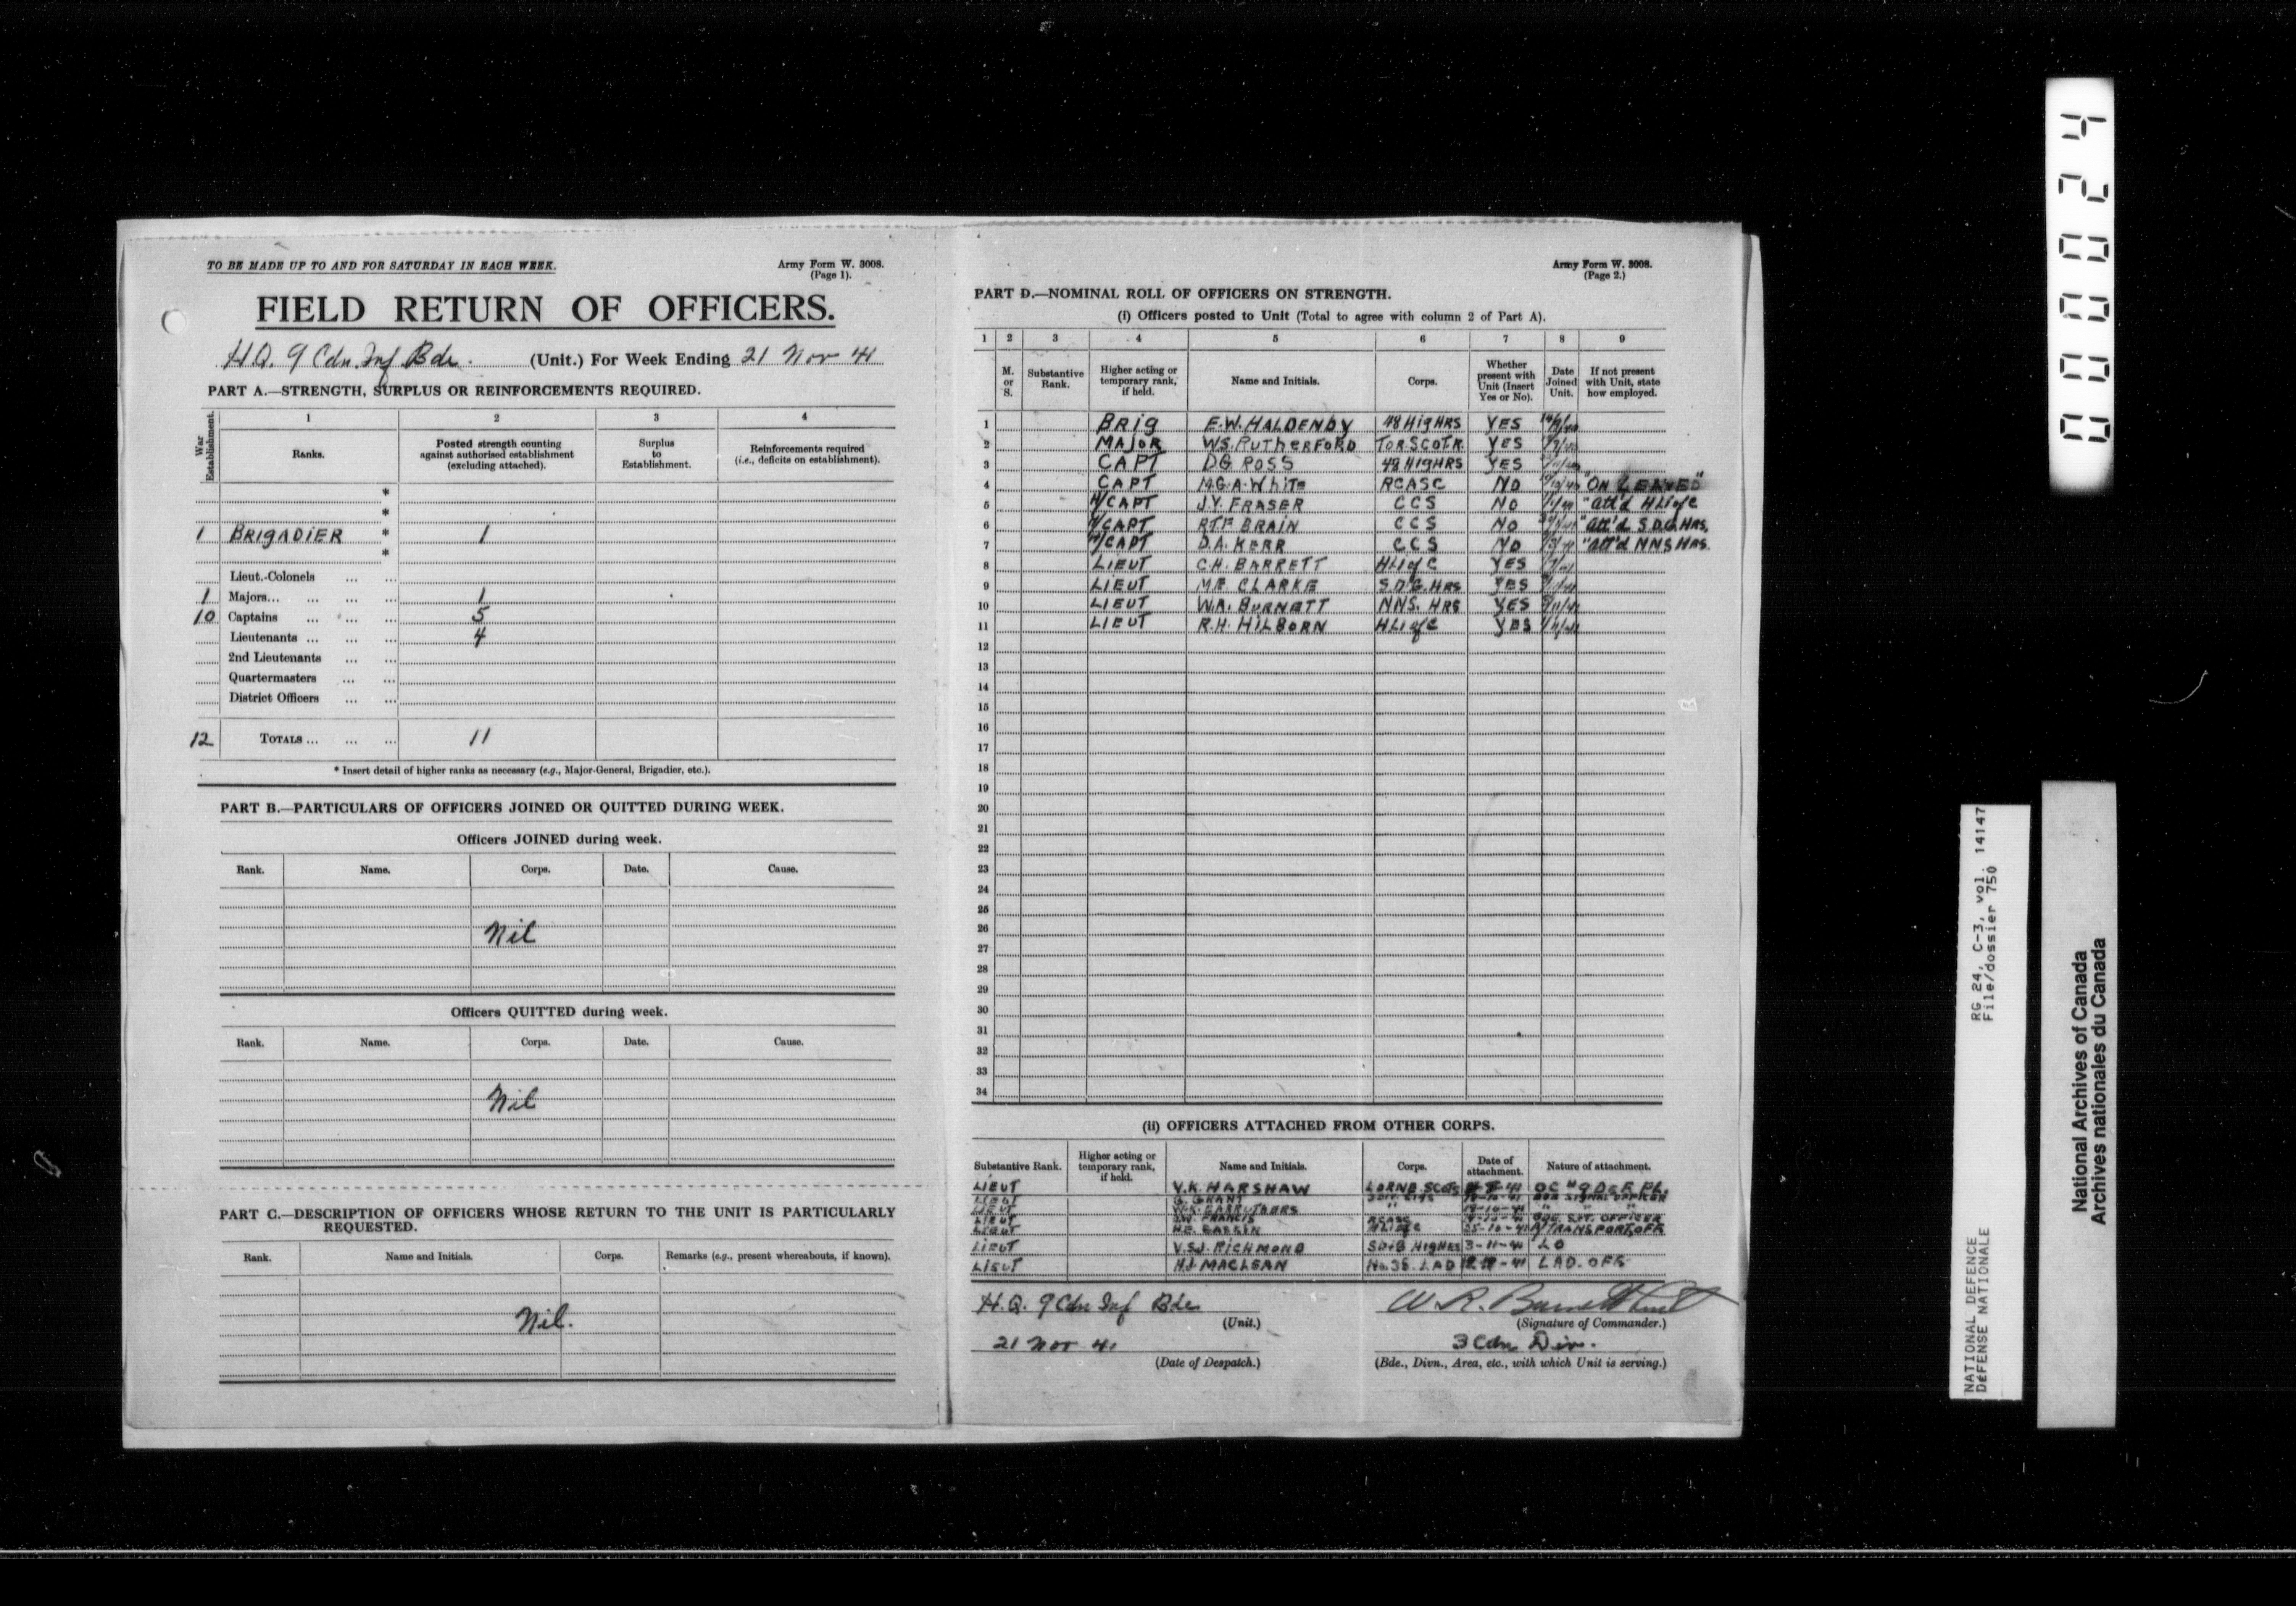 TO BE MADE UP TO AND FOR SATURDAY IN EACH WEEK.
Army Form W. 3008.
(Page 1).
FIELD RETURN OF OFFICERS.
H.Q. 9 Cdn. Inf Bde. (Unit.) For Week Ending 21 Nov 41
PART A.—STRENGTH, SURPLUS OR REINFORCEMENTS REQUIRED.
War Establishment.
1 2 3 4
Ranks.
Posted strength counting against authorised establishment (excluding attached).
Surplus to Establishment.
Reinforcements required (i.e., deficits on establishment).
*
*
1 BRIGADIER * 1
*
Lieut.-Colonels ... ...
1 Majors... ... ... ... 1
10 Captains ... ... ... 5
Lieutenants ... ... ... 4
2nd Lieutenants ... ...
Quartermasters ... ...
District Officers ... ...
12 TOTALS ... ... ... 11
* Insert detail of higher ranks as necessary (e.g., Major-General, Brigadier, etc.).
PART B.—PARTICULARS OF OFFICERS JOINED OR QUITTED DURING WEEK.
Officers JOINED during week.
Rank. Name. Corps. Date. Cause.
Nil
Officers QUITTED during week.
Rank. Name. Corps. Date. Cause.
Nil
PART C.—DESCRIPTION OF OFFICERS WHOSE RETURN TO THE UNIT IS PARTICULARLY
REQUESTED.
Rank. Name and Initials. Corps. Remarks (e.g., present whereabouts, if known).
Nil.
Army Form W. 3008.
(Page 2.)
PART D.—NOMINAL ROLL OF OFFICERS ON STRENGTH.
(i) Officers posted to Unit (Total to agree with column 2 of Part A).
1 2 3 4 5 6 7 8 9
M. or S.
Substantive Rank.
Higher acting or temporary rank, if held.
Name and Initials.
Corps.
Whether present with Unit (Insert Yes or No).
Date Joined Unit.
If not present with Unit, state how employed.
1 BRIG E.W. HALDENBY 48 HIGHRS YES
2 MAJOR W.S. RUTHERFORD TOR.SCOT.R. YES
3 CAPT D.G. ROSS 48 HIGHRS YES
4 CAPT M.G.A. WHITE RCASC NO "ON LEAVE"
5 CAPT J.Y. FRASER CCS NO "att'd HLI of C
6 CAPT R.T.F. BRAIN CCS NO "att'd S.D.G. HRS.
7 CAPT D.A. KERR CCS NO "att'd NNS HRS.
8 LIEUT C.H. BARRETT HLI of C YES
9 LIEUT M.E. CLARKE S.D.G. HRS YES
10 LIEUT W.R. BURNETT NNS. HRS YES
11 LIEUT R.H. HILBORN HLI of C YES
12
13
14
15
16
17
18
19
20
21
22
23
24
25
26
27
28
29
30
31
32
33
34
(ii) OFFICERS ATTACHED FROM OTHER CORPS.
Substantive Rank.
Higher acting or temporary rank, if held.
Name and Initials.
Corps.
Date of attachment.
Nature of attachment.
LIEUT V.K. HARSHAW LORNE SCOTS OC HQ DEF PL.
LIEUT G. GRANT
LIEUT W.K. CARRUTHERS " " " "
LIEUT FRANCIS RCASC OFFICER
LIEUT HLI of C 25-10-41 TRANSPORT OFF
LIEUT V.S.J. RICHMOND SD&G HIGHRS 3-11-41 LO
LIEUT H.J. MACLEAN No. 35. LAD LAD. OFF
H.Q. 9 Cdn Inf Bde
(Unit.)
W. R. Burnett Lieut
(Signature of Commander.)
21 Nov 41
(Date of Despatch.)
3 Cdn Div.
(Bde., Divn., Area, etc., with which Unit is serving.)
00024
RG 24, C-3, vol. 14147
File/dossier 750
NATIONAL DEFENCE
DÉFENSE NATIONALE
National Archives of Canada
Archives nationales du Canada